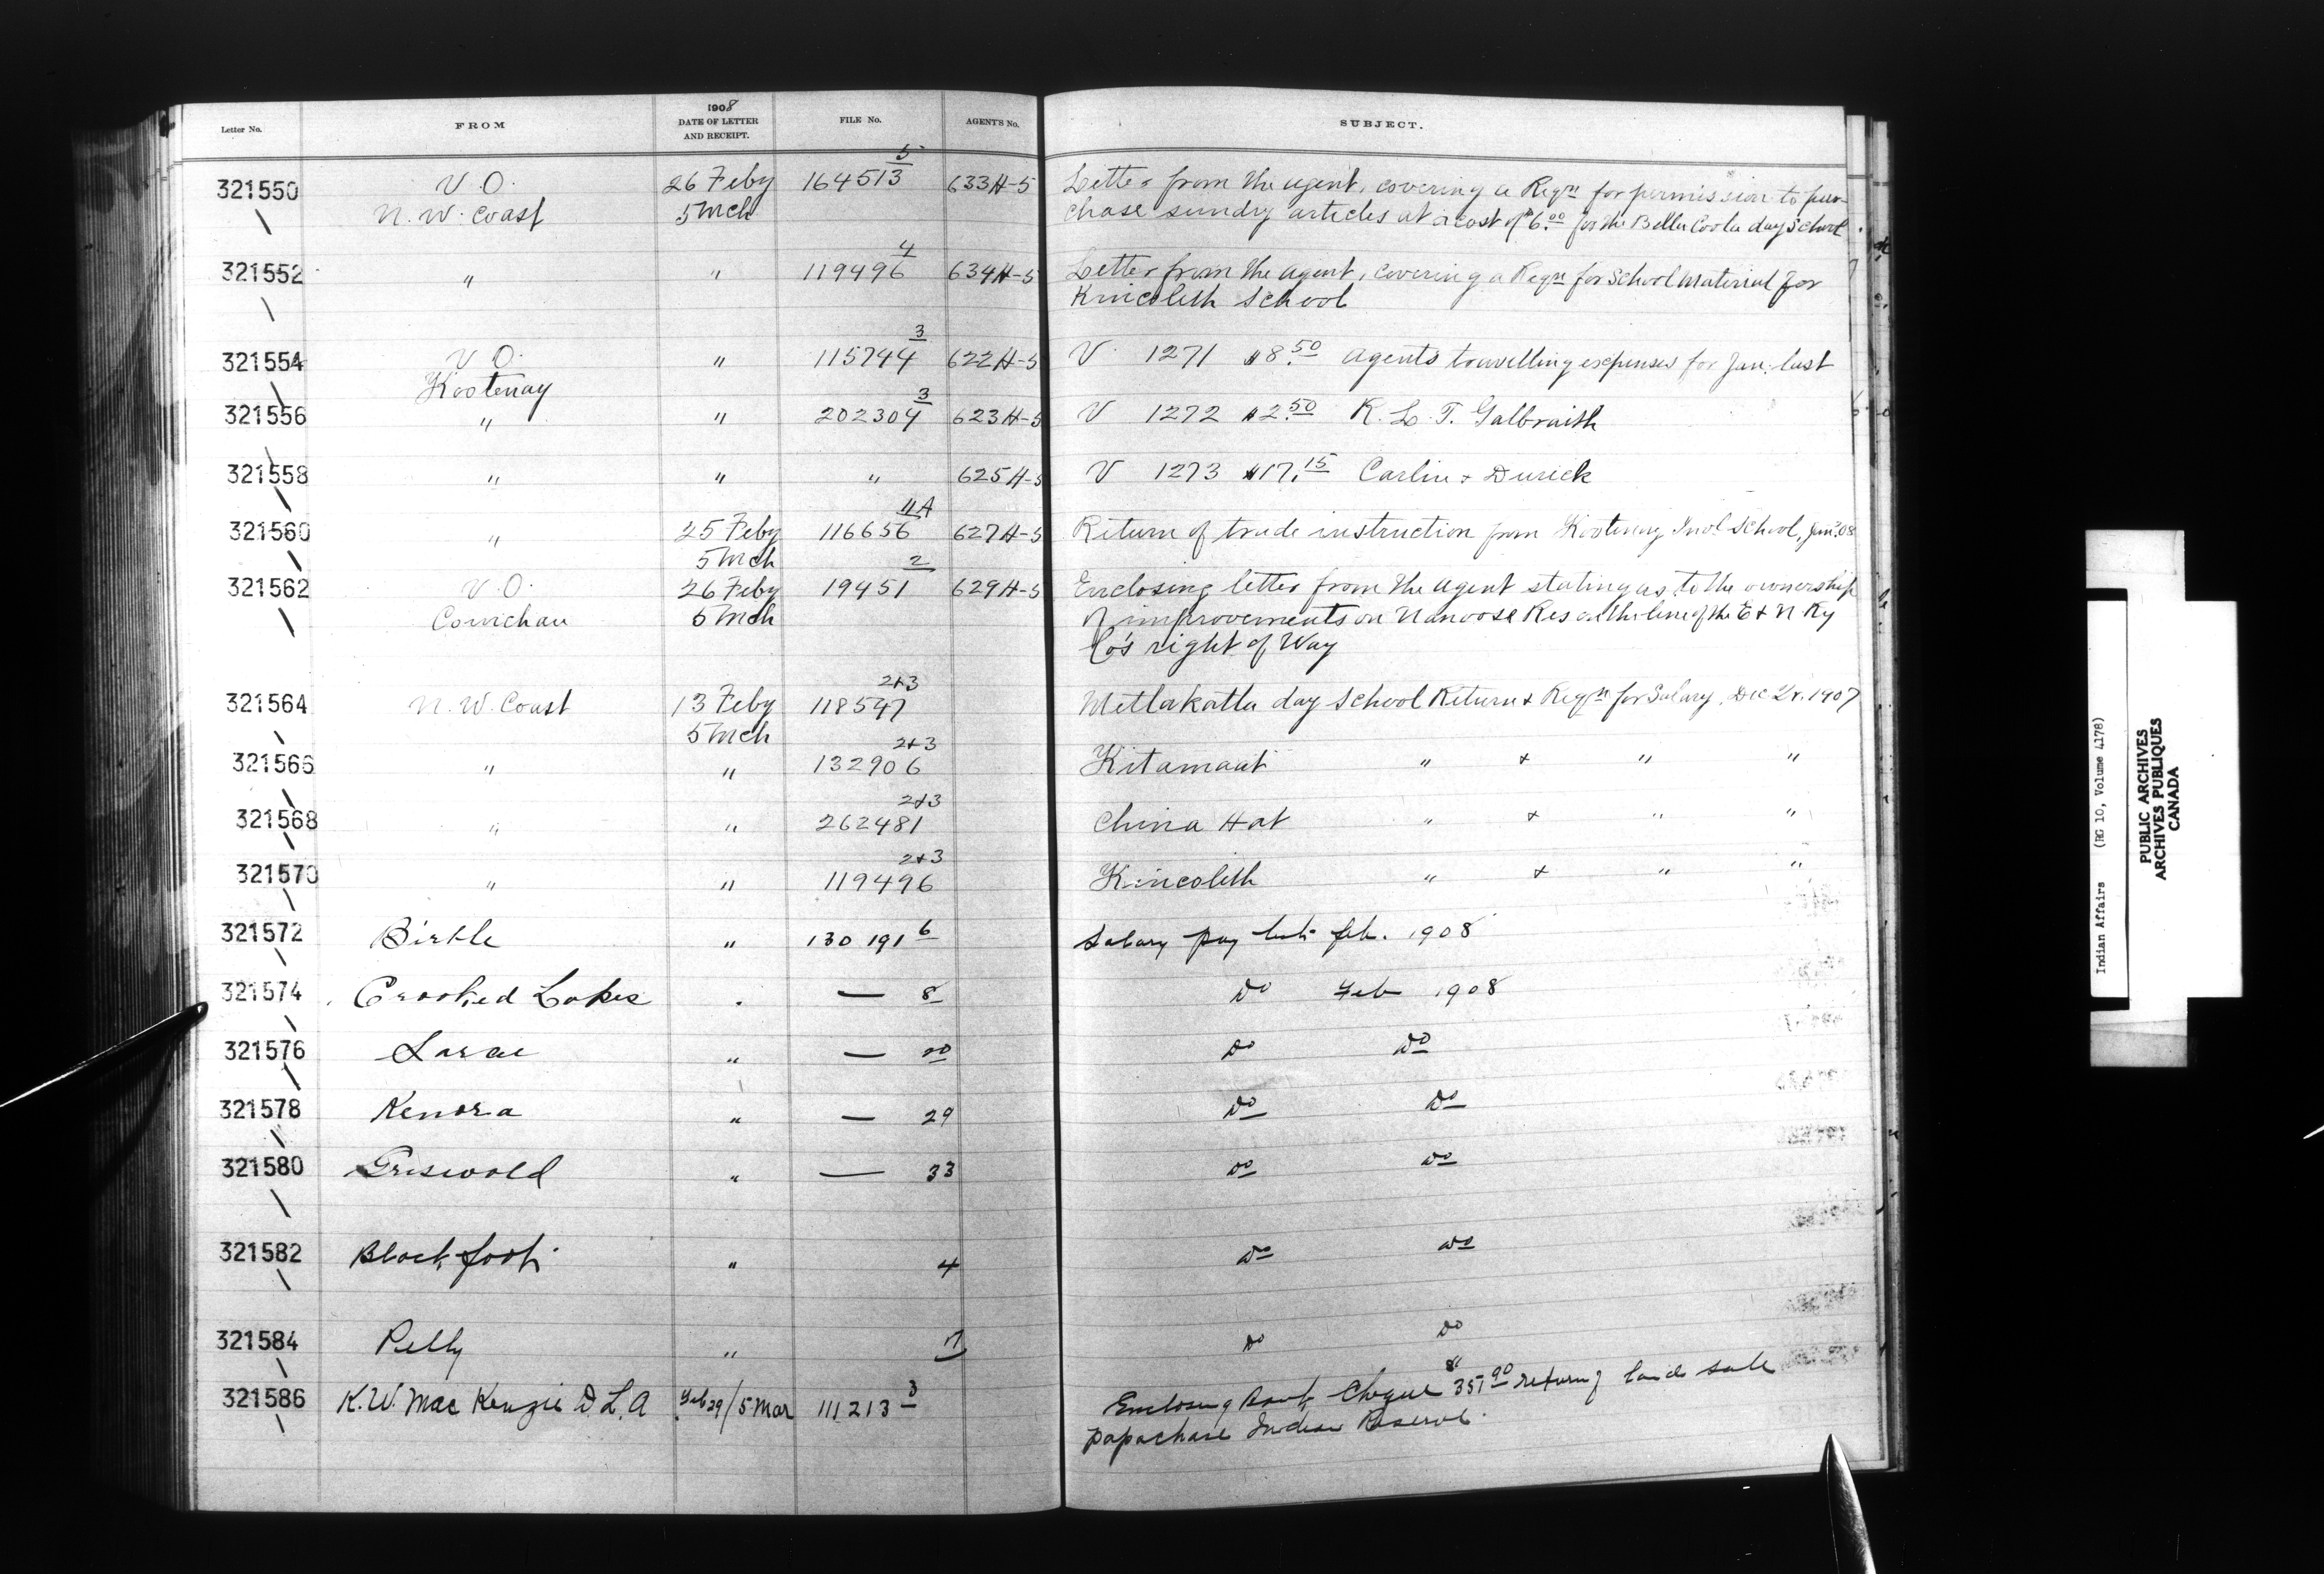 1908
Letter No. FROM DATE OF LETTER AND RECEIPT. FILE No. AGENT'S No. SUBJECT.
321550 V.O. 26 Feby 164513 5 633 H-5 Letter from the Agent, covering a Reqn for permission to pur-
N.W. Coast 5 Mch chase sundry articles at a cost of $6.00 for the Bella Coola day School
321552 " " 119496 4 634 H-5 Letter from the Agent, covering a Reqn for School Material for
Kincolith School
321554 V.O. " 115744 3 622 H-5 V 1271 $8.50 Agents travelling expenses for Jan. last
Kootenay
321556 " " 202304 3 623 H-5 V 1272 $2.50 R. L. T. Galbraith
321558 " " " 625 H-5 V 1273 $17.15 Carlin & Durick
321560 " 25 Feby 116656 11A 627 H-5 Return of trade instruction from Kootenay Indl School, Jany. 08
5 Mch
321562 V.O. 26 Feby 19451 2 629 H-5 Enclosing letter from the Agent stating as to the ownership
Cowichan 5 Mch of improvements on Nanoose Res on the line of the E & N Ry
Co's right of Way
321564 N.W. Coast 13 Feby 118547 2+3 Metlakatla day School Return & Reqn for Salary, Dec Qr. 1907
5 Mch
321566 " " 132906 2+3 Kitamaat " & " "
321568 " " 262481 2+3 China Hat " & " "
321570 " " 119496 2+3 Kincolith " & " "
321572 Birtle " 130191 6 Salary pay list Feb. 1908
321574 Crooked Lakes " — 8 Do Feb 1908
321576 " — Do Do
321578 Kenora " — 29 Do Do
321580 Griswold " — 33 Do Do
321582 Blackfoot " 4 Do Do
321584 Pelly " 7 Do Do
321586 K.W. MacKenzie D.L.A Feb 29/5 Mar 111213 3 Enclosing Bank Cheque $351.90 return of land sale
Papachase Indian Reserve.
Indian Affairs (RG 10, Volume 4178)
PUBLIC ARCHIVES
ARCHIVES PUBLIQUES
CANADA